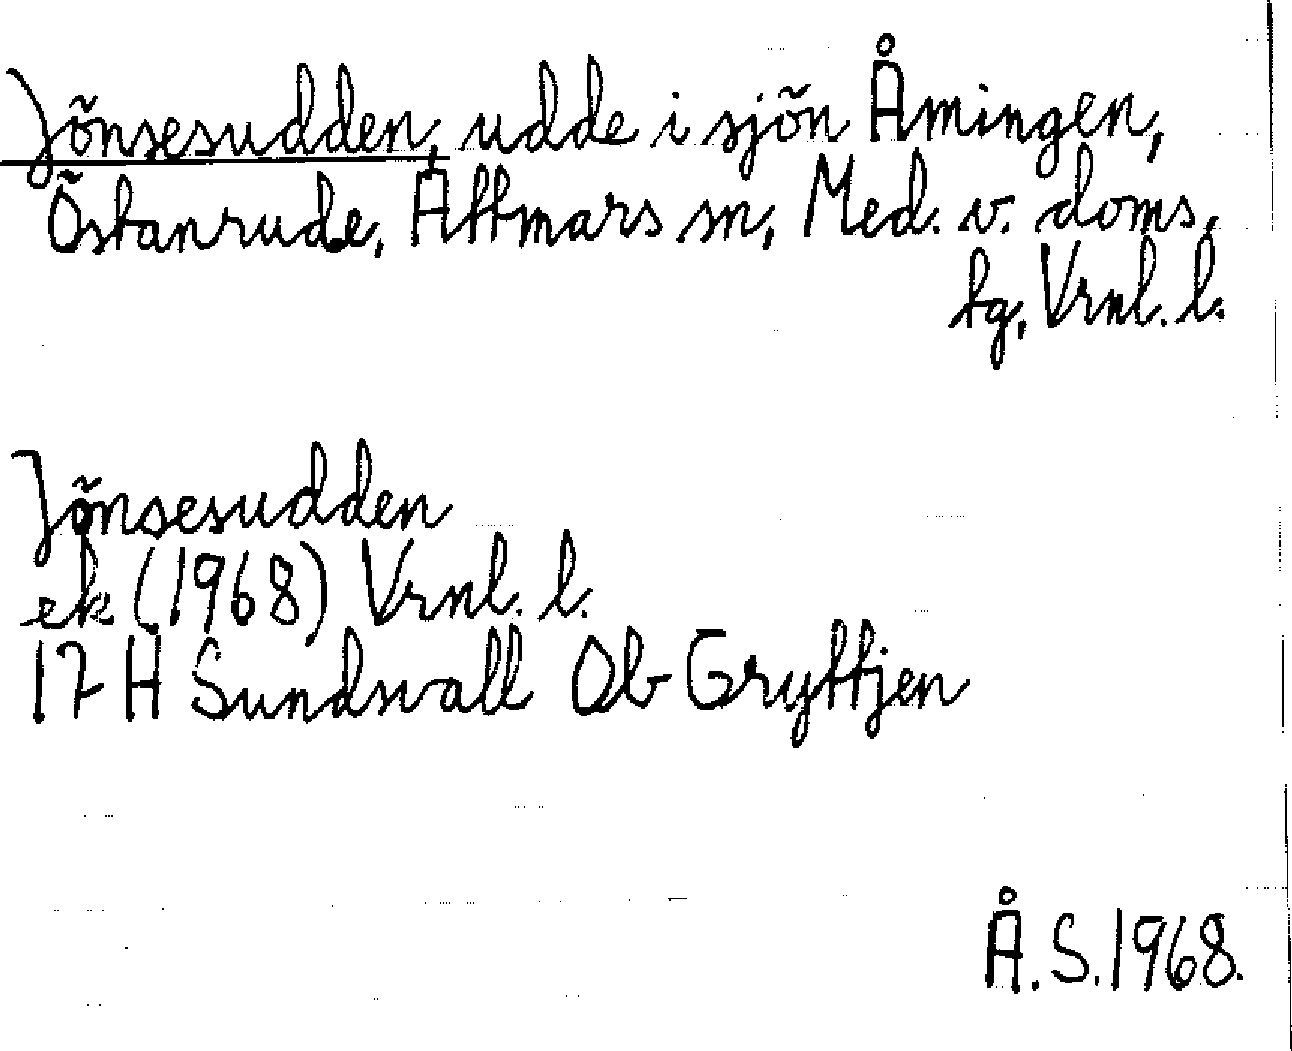 Jönsesudden, udde i sjön Åmingen,
Östanrude, Attmars sn, Med. v. doms.
tg, Vrnl. l.
Jönsesudden
ek (1968) Vrnl. l.
17 H Sundsvall Ob Gryttjen
Å.S. 1968.